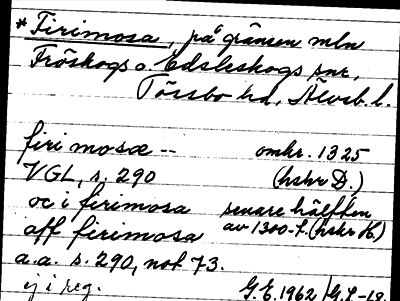 *Firimosa, på gränsen mln
Fröskogs o. Edsleskogs snr,
Tössbo hd, Älvsb. l.
firimosæ -- omkr. 1325
VGL, s. 290 (hskr D.)
oc i firimosa senare hälften
aff firimosa av 1300-t. (hskr H.)
a.a. s. 290, not 73.
ej i reg. G.E. 1962